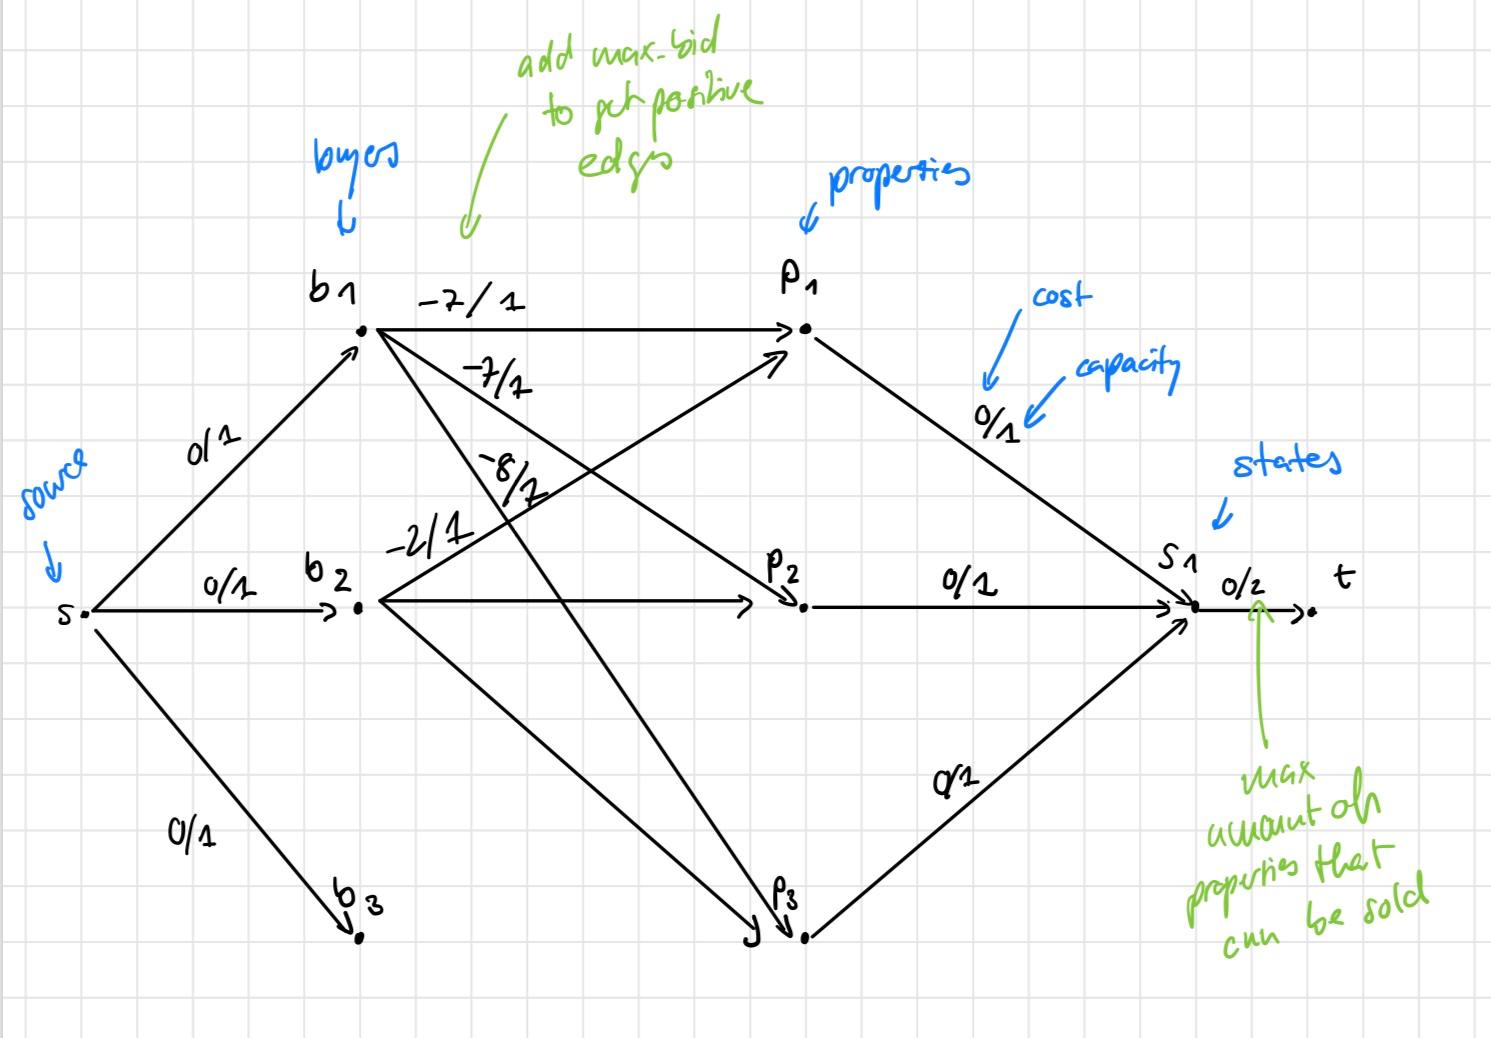 add max_bid
to get positive
edges
buyers
properties
b1
p1
-7/1
cost
-7/1
capacity
0/1
0/1
source
states
-8/1
-2/1
s
0/1
b2
p2
0/1
s1
0/2
t
0/1
0/1
b3
p3
max
amount of
properties that
can be sold